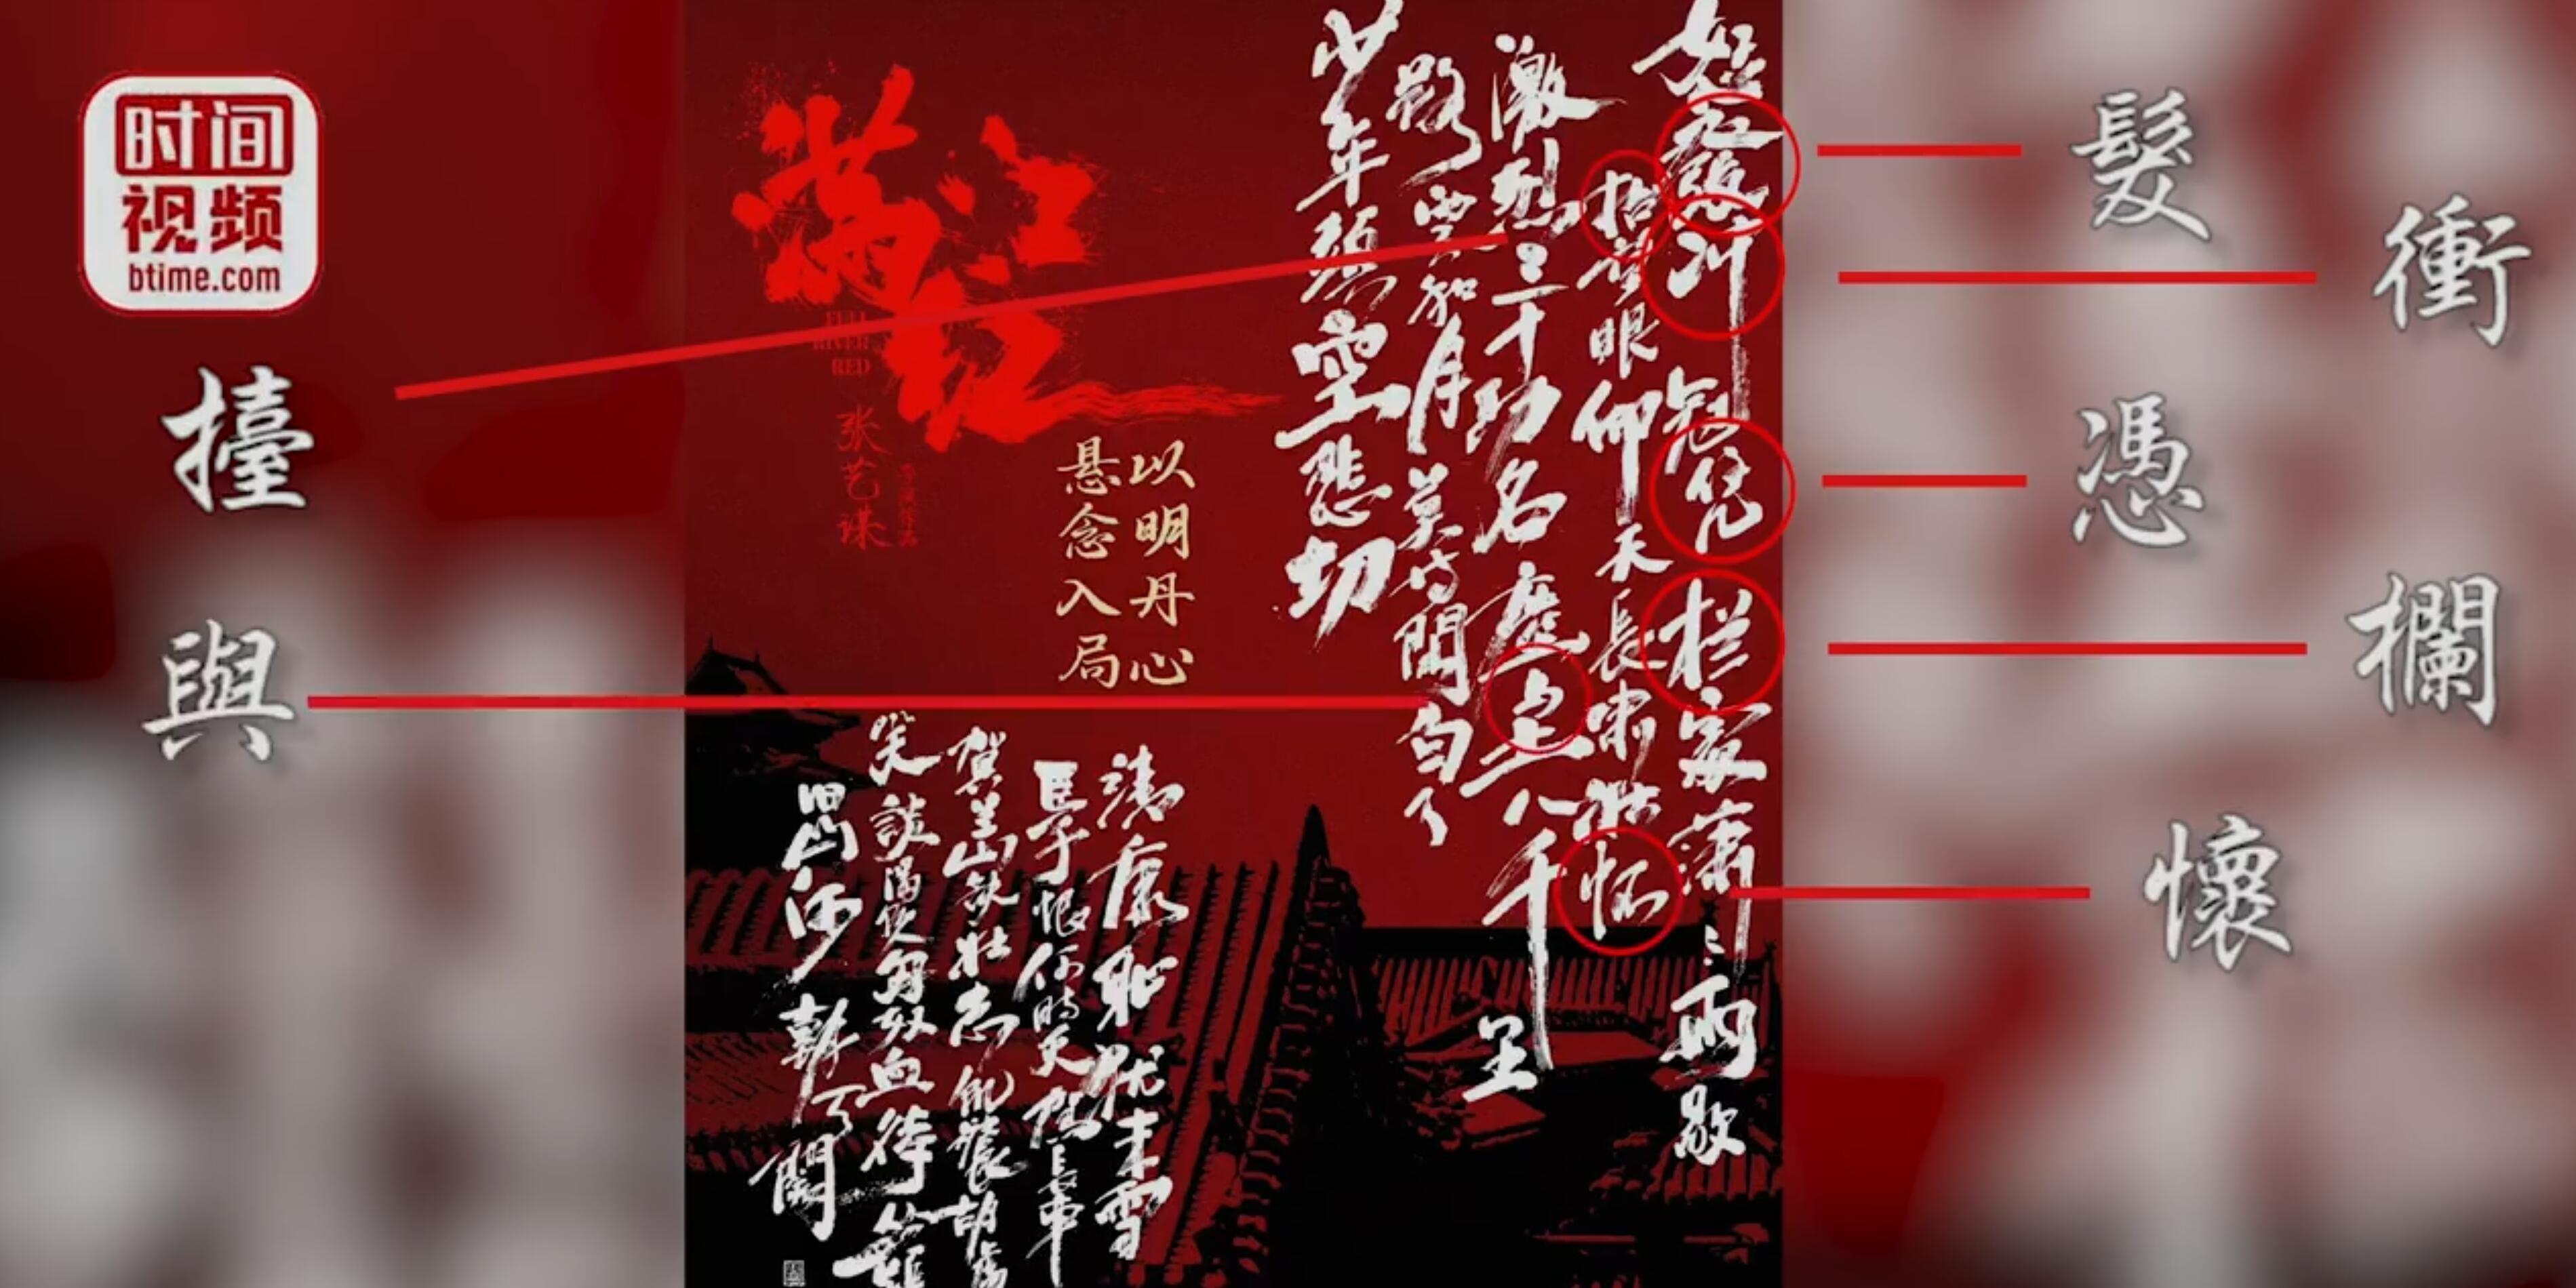 时间
视频
btime.com
擡
與
满江红
FULL
RIVER
RED
张艺谋
以明丹心
悬念入局
怒发冲冠凭栏家潇〻雨歇
抬望眼仰天长啸壮怀
激烈三十功名尘与土八千里
路云和月莫等闲白了
少年头空悲切
靖康耻犹未雪
臣子恨何时灭驾长车
贺兰山缺壮志飢餐胡虏
笑谈渴饮匈奴血待從頭
旧山河朝天阙
髮
衝
憑
欄
懷